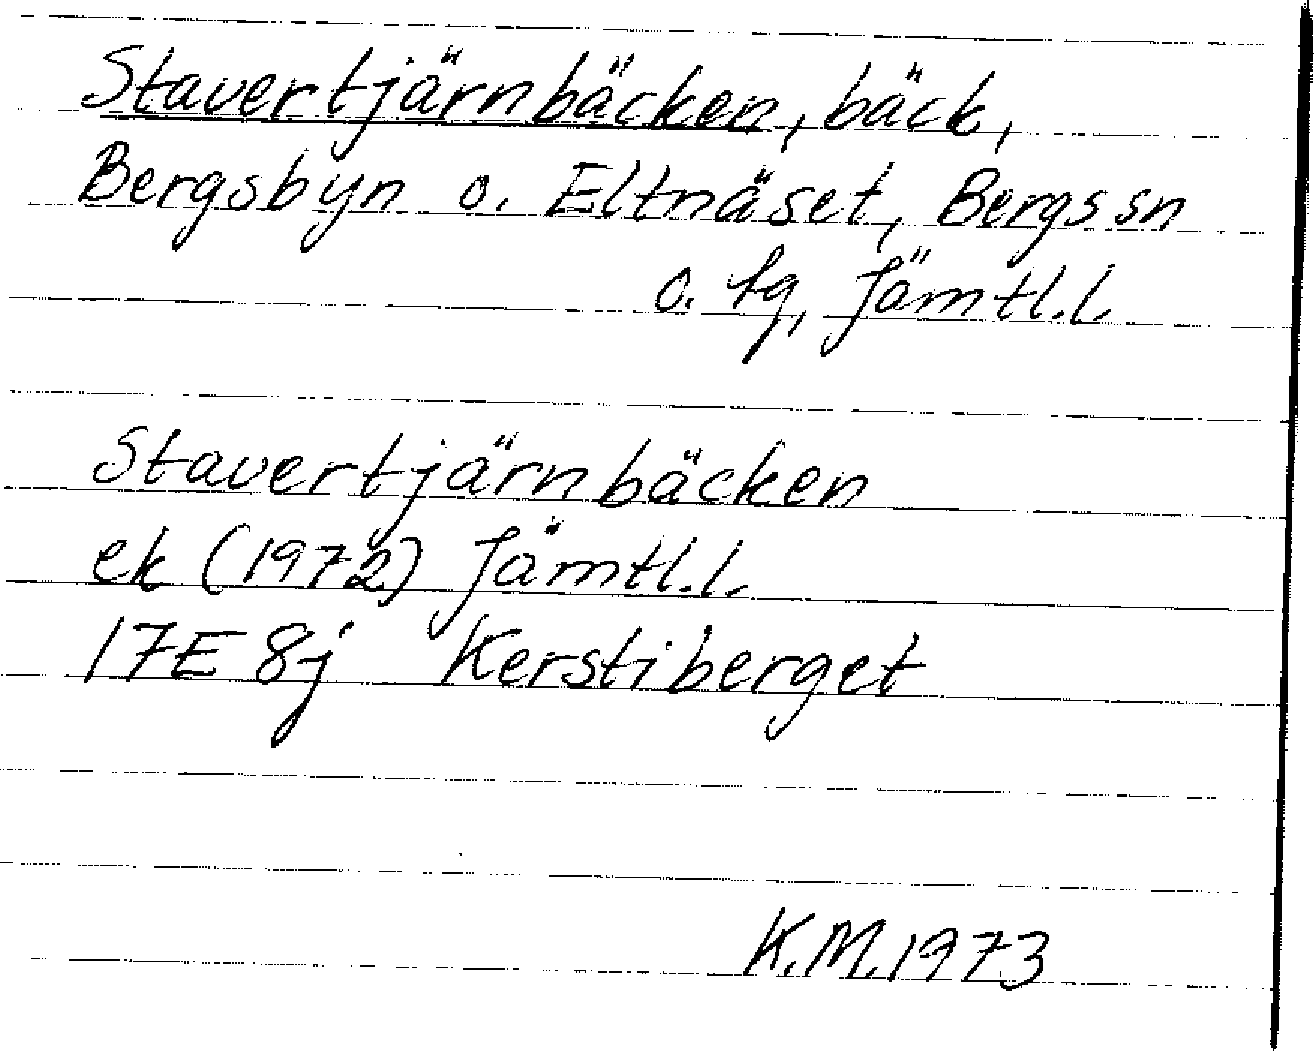 Stavertjärnbäcken, bäck,
Bergsbyn o. Eltnäset, Bergs sn
o. tg, Jämtl. l.
Stavertjärnbäcken
ek (1972) Jämtl. l.
17E 8j Kerstiberget
K. M. 1973